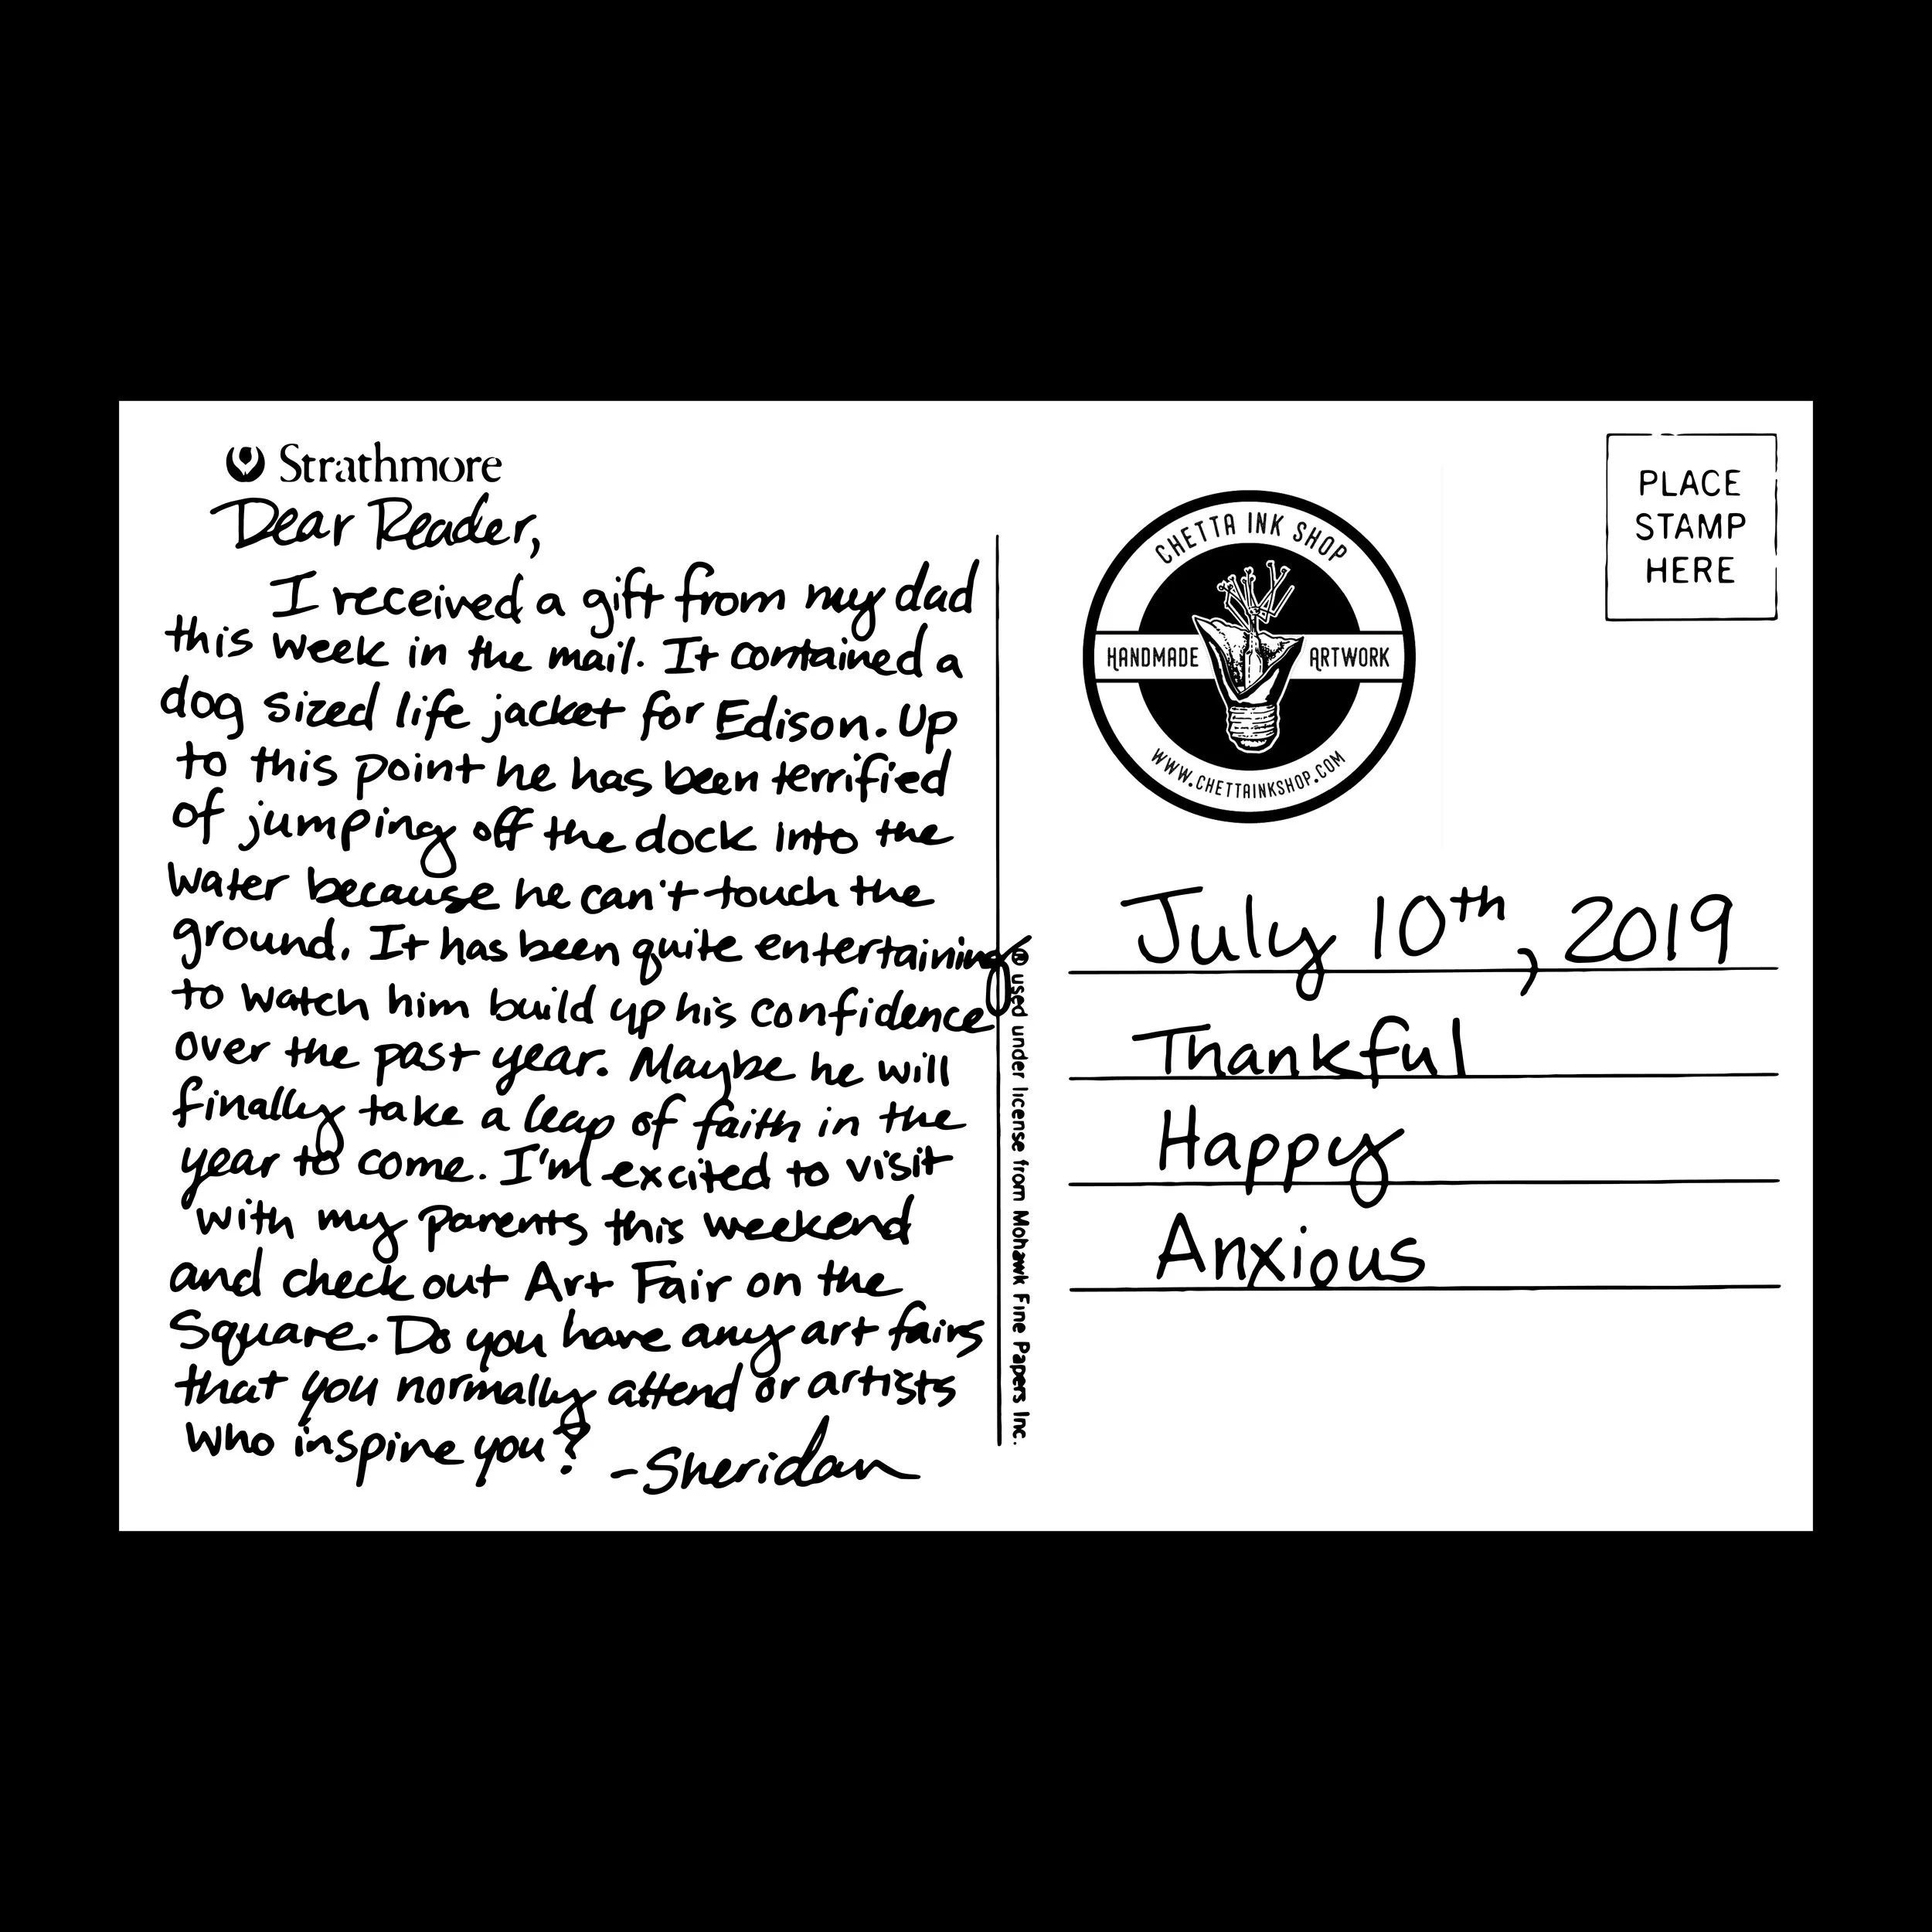 Strathmore
Dear Reader,
I received a gift from my dad
this week in the mail. It contained a
dog sized life jacket for Edison. Up
to this point he has been terrified
of jumping off the dock into the
water because he can't touch the
ground. It has been quite entertaining
to watch him build up his confidence
over the past year. Maybe he will
finally take a leap of faith in the
year to come. I'm excited to visit
with my parents this weekend
and check out Art Fair on the
Square. Do you have any art fairs
that you normally attend or artists
who inspire you?
-Sheridan
® used under license from Mohawk Fine Papers Inc.
CHETTA INK SHOP
HANDMADE ARTWORK
WWW.CHETTAINKSHOP.COM
PLACE
STAMP
HERE
July 10th, 2019
Thankful
Happy
Anxious